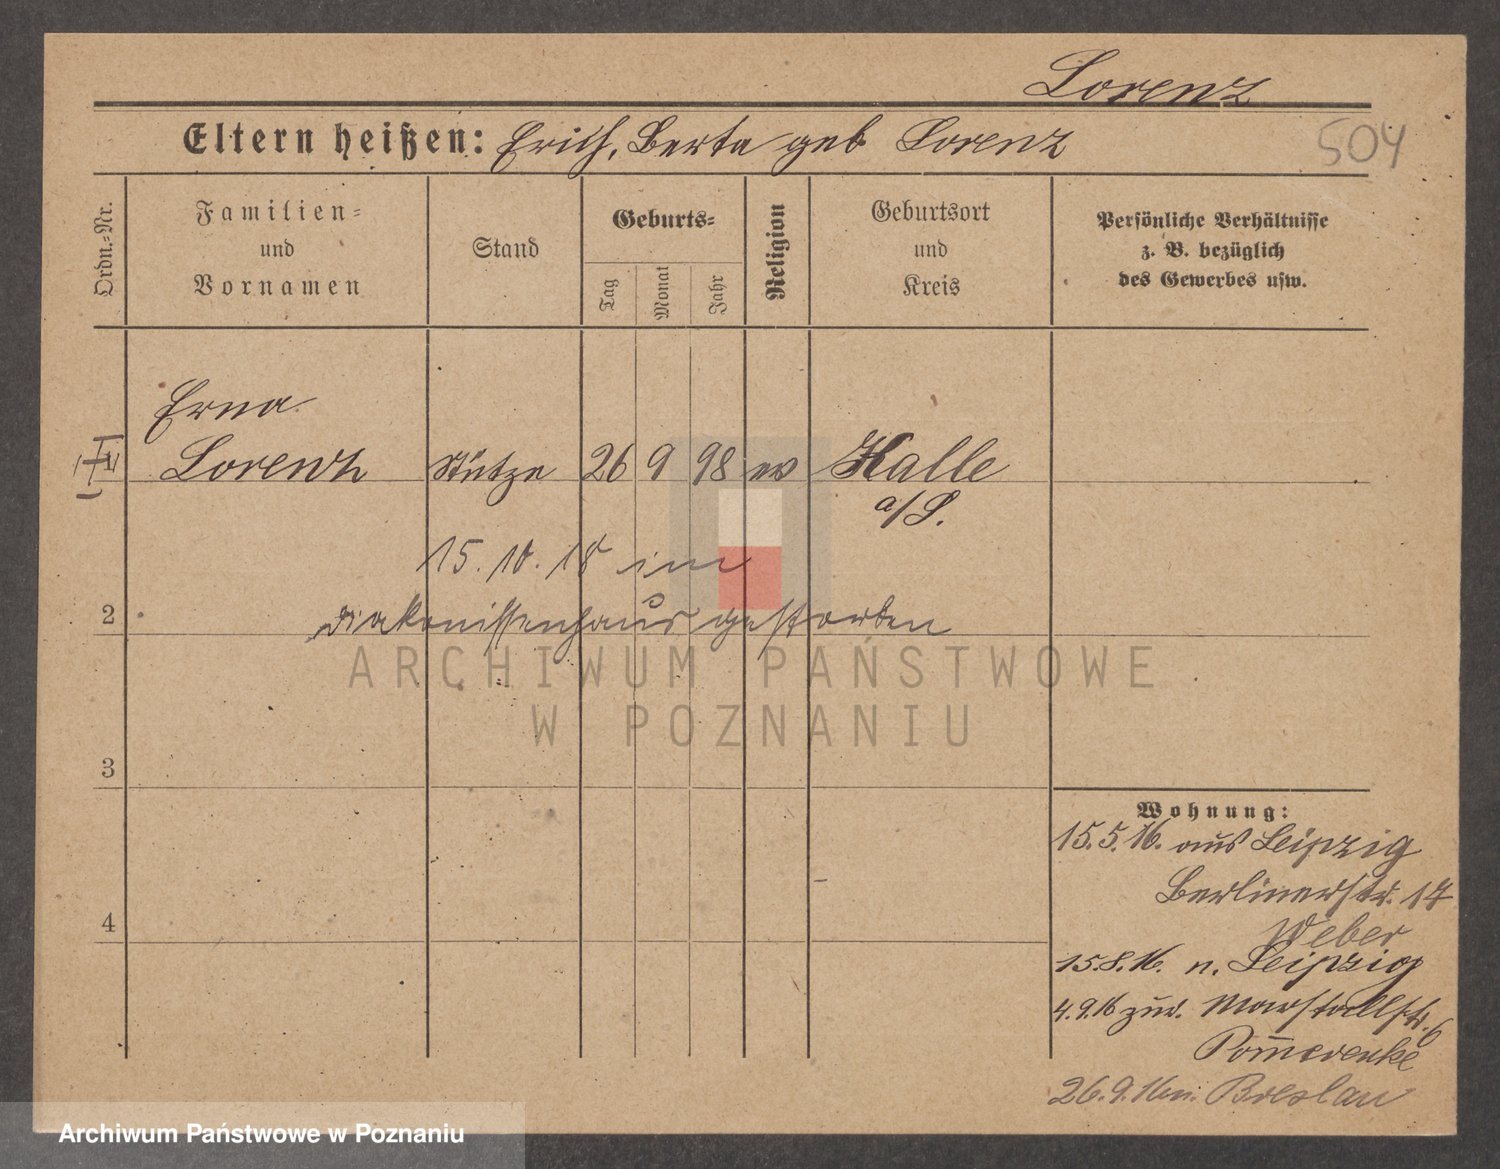 Lorenz
Eltern heißen: Erich, Berta geb Lorenz
504
Ordn.=Nr.
Familien=
und
Vornamen
Stand
Geburts=
Tag
Monat
Jahr
Religion
Geburtsort
und
Kreis
Persönliche Verhältnisse
z. B. bezüglich
des Gewerbes usw.
Erna
1 Lorenz Stütze 26 9 98 ev Halle
a/S.
15.10.18 im
2 Diakonissenhaus gestorben
3
4
Wohnung:
15.5.16. aus Leipzig
Berlinerstr. 17
Weber
15.8.16. n. Leipzig
4.9.16 zur. Marstallstr. 6
Pom̅erenke
26.9.16 n. Breslau
ARCHIWUM PAŃSTWOWE
W POZNANIU
Archiwum Państwowe w Poznaniu